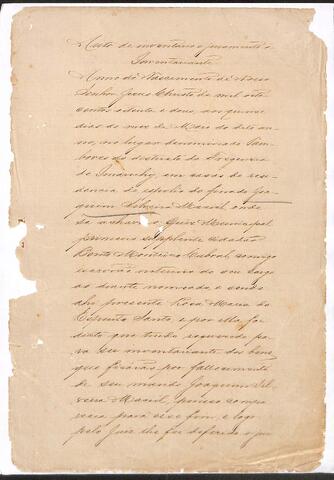 Auto de inventario e juramento a
Inventariante
Anno do Nascimento de Nosso
Senhor Jesus Christo de mil oito
centos oitenta e dous, aos quinze
dias do mez de Maio do dito an-
no, no lugar denominado Tam-
bores do districto da Freguesia
de Imaruhy, em casas de resi-
dencia do espolio do finado Joa-
quim Silveira Maciel, onde
se achava o Juiz Municipal
primeiro supplente cidadão
Bento Monteiro Cabral, comigo
escrivão interino do seu cargo
ao diante nomeado, e sendo
ahi presente Rosa Maria do
Espirito Santo e por ella foi
dito que tinha requerido pa-
ra ser inventariante dos bens
que ficarão por fallecimento
de seu marido Joaquim Sil-
veira Maciel, por isso compa-
recia para esse fim, e logo
pelo Juiz lhe foi deferido o ju-